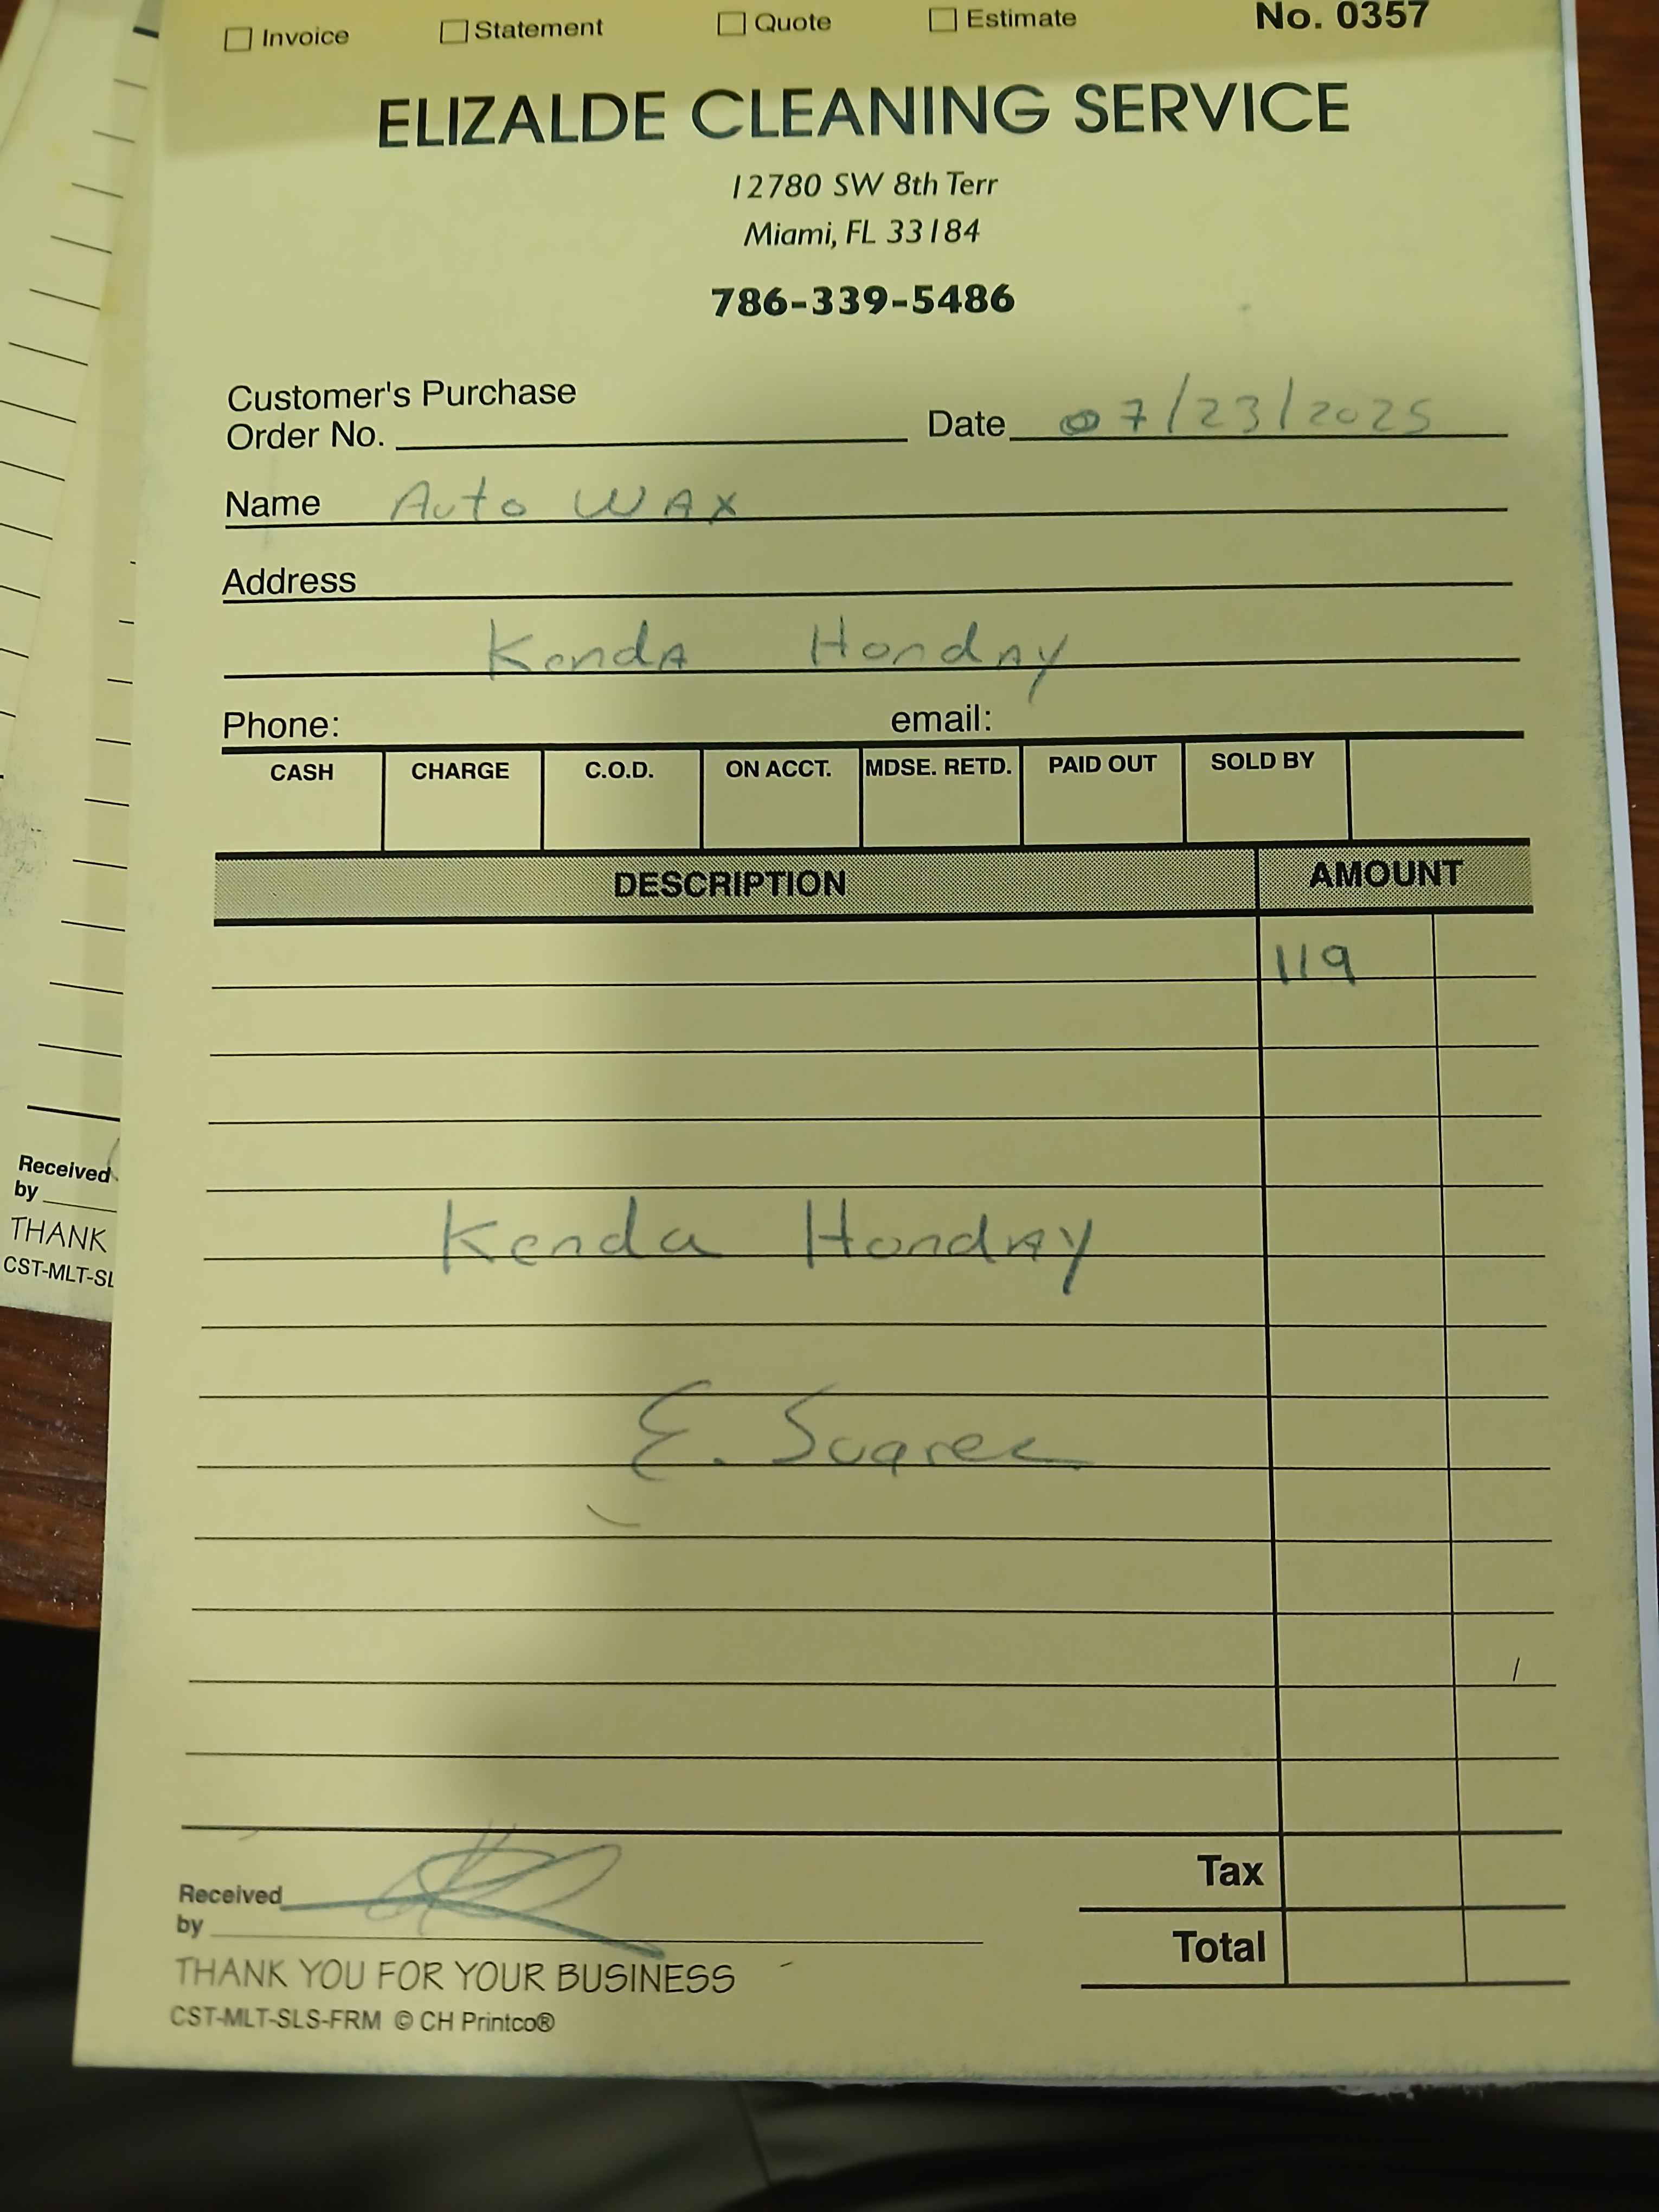 Invoice Statement Quote Estimate No. 0357
ELIZALDE CLEANING SERVICE
12780 SW 8th Terr
Miami, FL 33184
786-339-5486
Customer's Purchase
Order No. Date 07/23/2025
Name Auto WAX
Address
Kenda Honday
Phone: email:
CASH CHARGE C.O.D. ON ACCT. MDSE. RETD. PAID OUT SOLD BY
DESCRIPTION AMOUNT
119
Kenda Honday
E. Suarez
Tax
Received
by
Total
THANK YOU FOR YOUR BUSINESS
CST-MLT-SLS-FRM © CH Printco®
Received
by
THANK
CST-MLT-SL